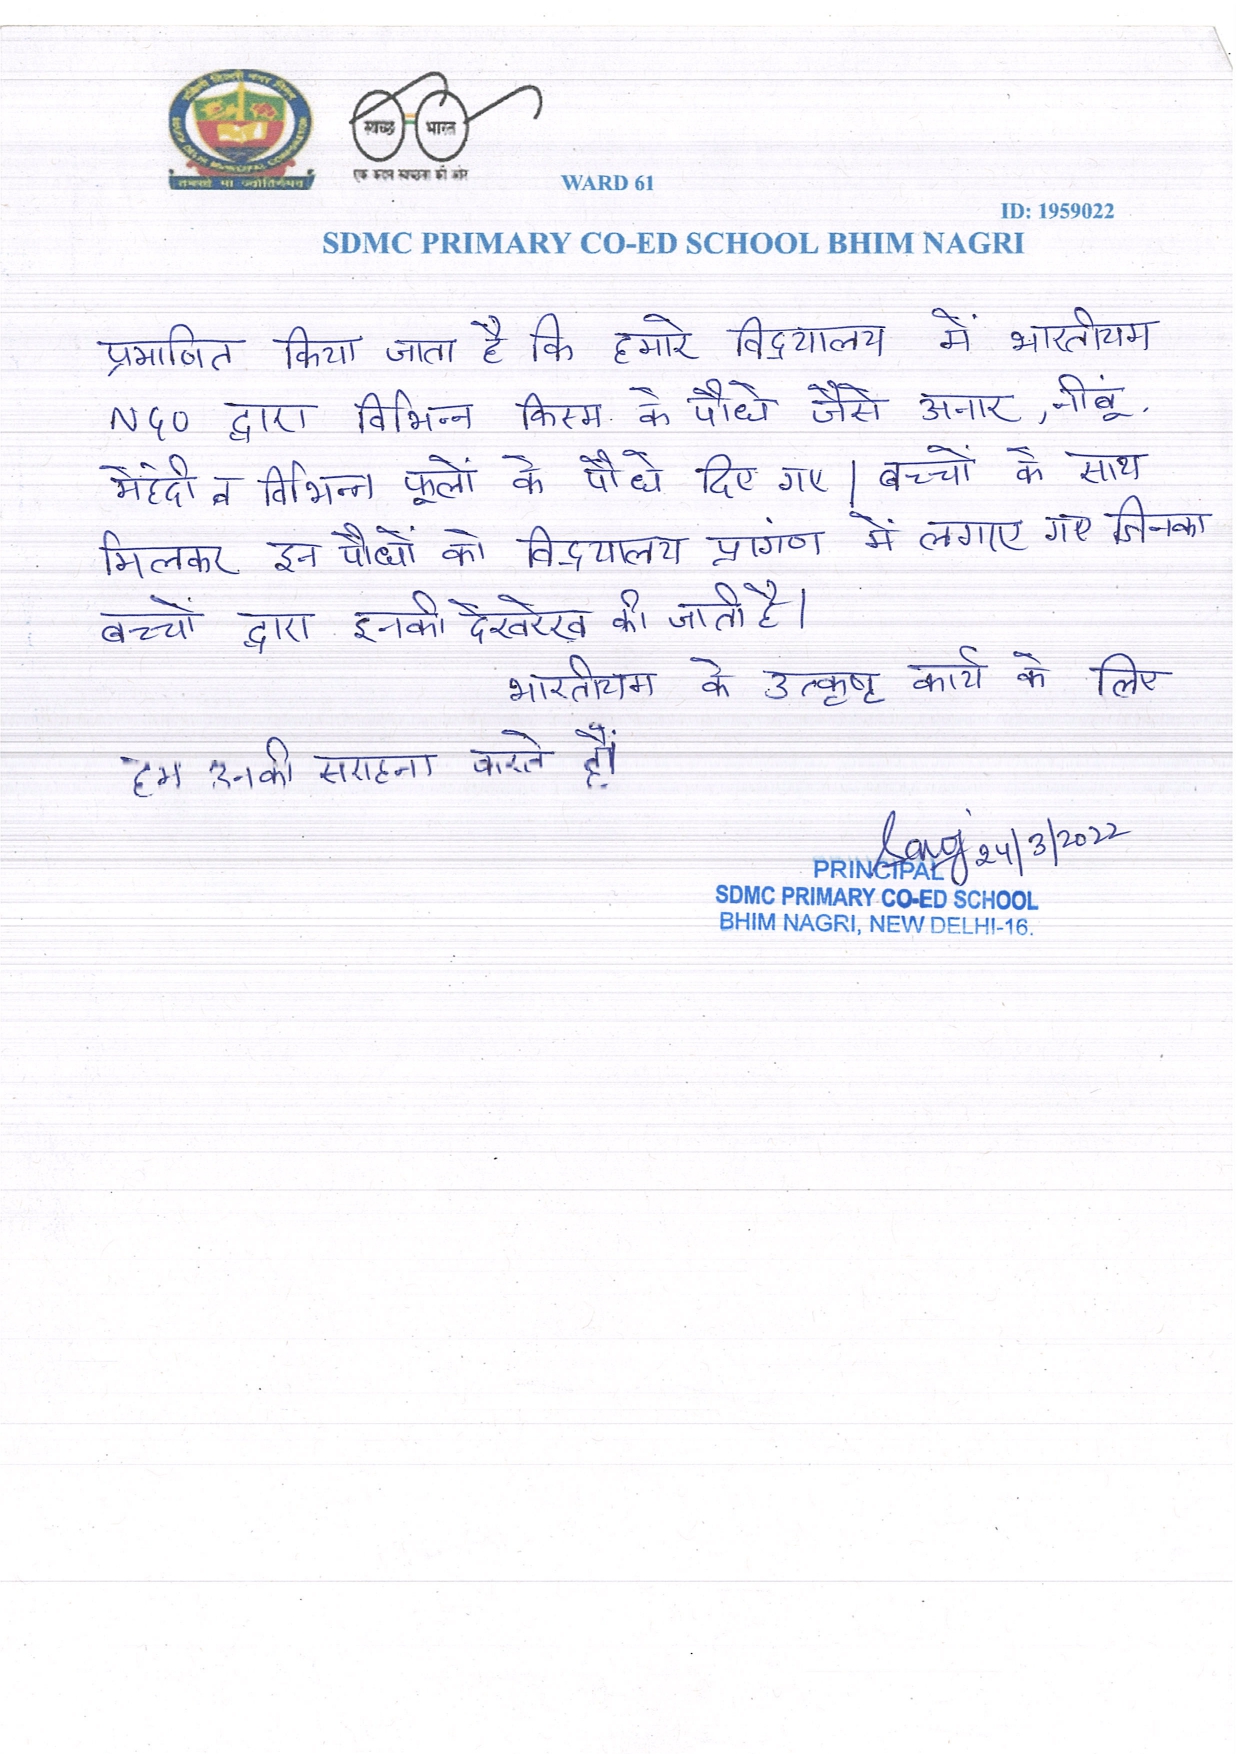 दक्षिणी दिल्ली नगर निगम
SOUTH DELHI MUNICIPAL CORPORATION
तमसो मा ज्योतिर्गमय
स्वच्छ भारत
एक कदम स्वच्छता की ओर
WARD 61
ID: 1959022
SDMC PRIMARY CO-ED SCHOOL BHIM NAGRI
प्रमाणित किया जाता है कि हमारे विद्यालय में भारतीयम
NGO द्वारा विभिन्न किस्म के पौधे जैसे अनार, नीबूं,
मेंहदी व विभिन्न फूलों के पौधे दिए गए। बच्चों के साथ
मिलकर इन पौधों को विद्यालय प्रागंण में लगाए गए जिनका
बच्चों द्वारा इनकी देखरेख की जाती है।
भारतीयम के उत्कृष्ट कार्य के लिए
हम उनकी सराहना करते हैं।
24/3/2022
PRINCIPAL
SDMC PRIMARY CO-ED SCHOOL
BHIM NAGRI, NEW DELHI-16.